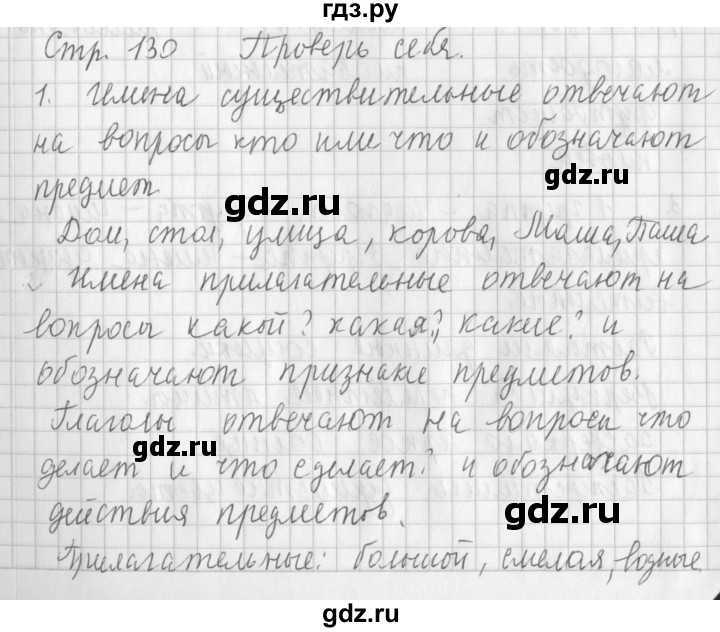 гдз.ру
Стр. 130 Проверь себя.
1. Имена существительные отвечают
на вопросы кто или что и обозначают
предмет
gdz.ru
gdz.ru
Дом, стол, улица, корова, Маша, Паша
Имена прилагательные отвечают на
вопросы какой? какая?, какие? и
обозначают признаки предметов.
Глаголы отвечают на вопросы что
gdz.ru
делает и что сделает? и обозначают
gdz.ru
действия предметов.
Прилагательные: большой, смелая, водные
gdz.ru